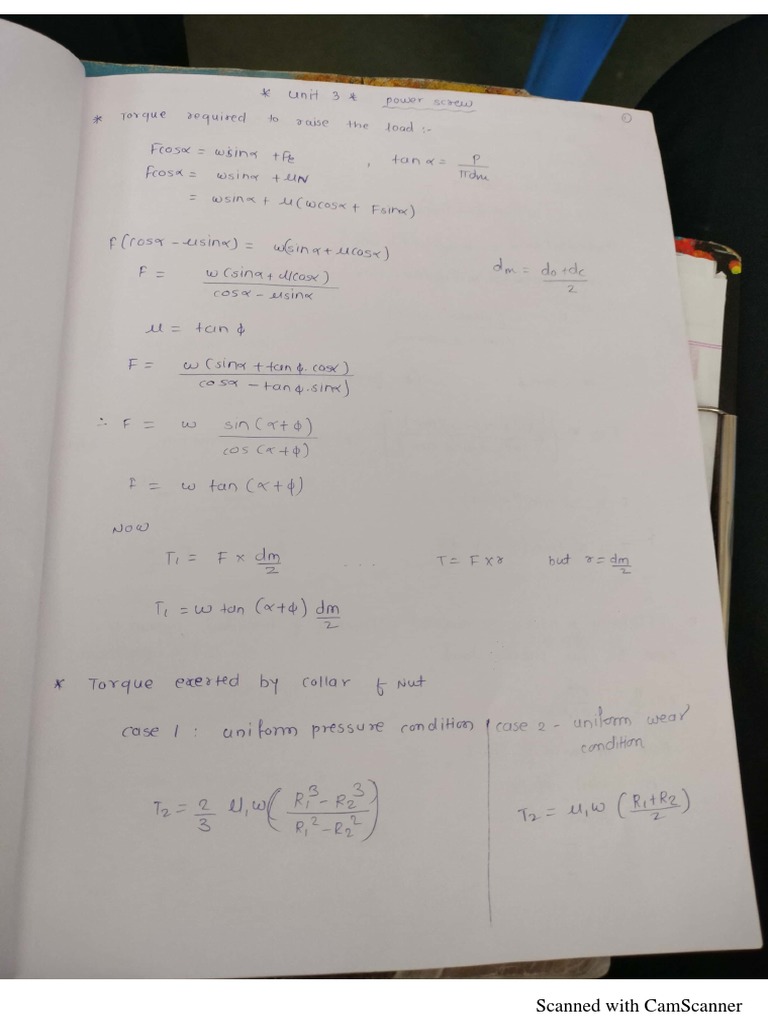 * Unit 3 * power screw
①
* Torque required to raise the load :-
Fcosα = wsinα + Ft , tanα = P/πdm
Fcosα = wsinα + μN
= wsinα + μ(wcosα + Fsinα)
F(cosα - μsinα) = w(sinα + μcosα)
F = w(sinα + μcosα)/cosα - μsinα
dm = do+dc/2
μ = tan ϕ
F = w(sinα + tanϕ.cosα)/cosα - tanϕ.sinα)
∴ F = w sin(α+ϕ)/cos(α+ϕ)
F = w tan(α+ϕ)
Now
T1 = F × dm/2 ... T = F×r but r = dm/2
T1 = w tan (α+ϕ) dm/2
* Torque exerted by collar & Nut
case 1 : uniform pressure condition
T2 = 2/3 μ1w(R1³ - R2³/R1² - R2²)
case 2 - uniform wear
condition
T2 = μ1w (R1+R2/2)
Scanned with CamScanner